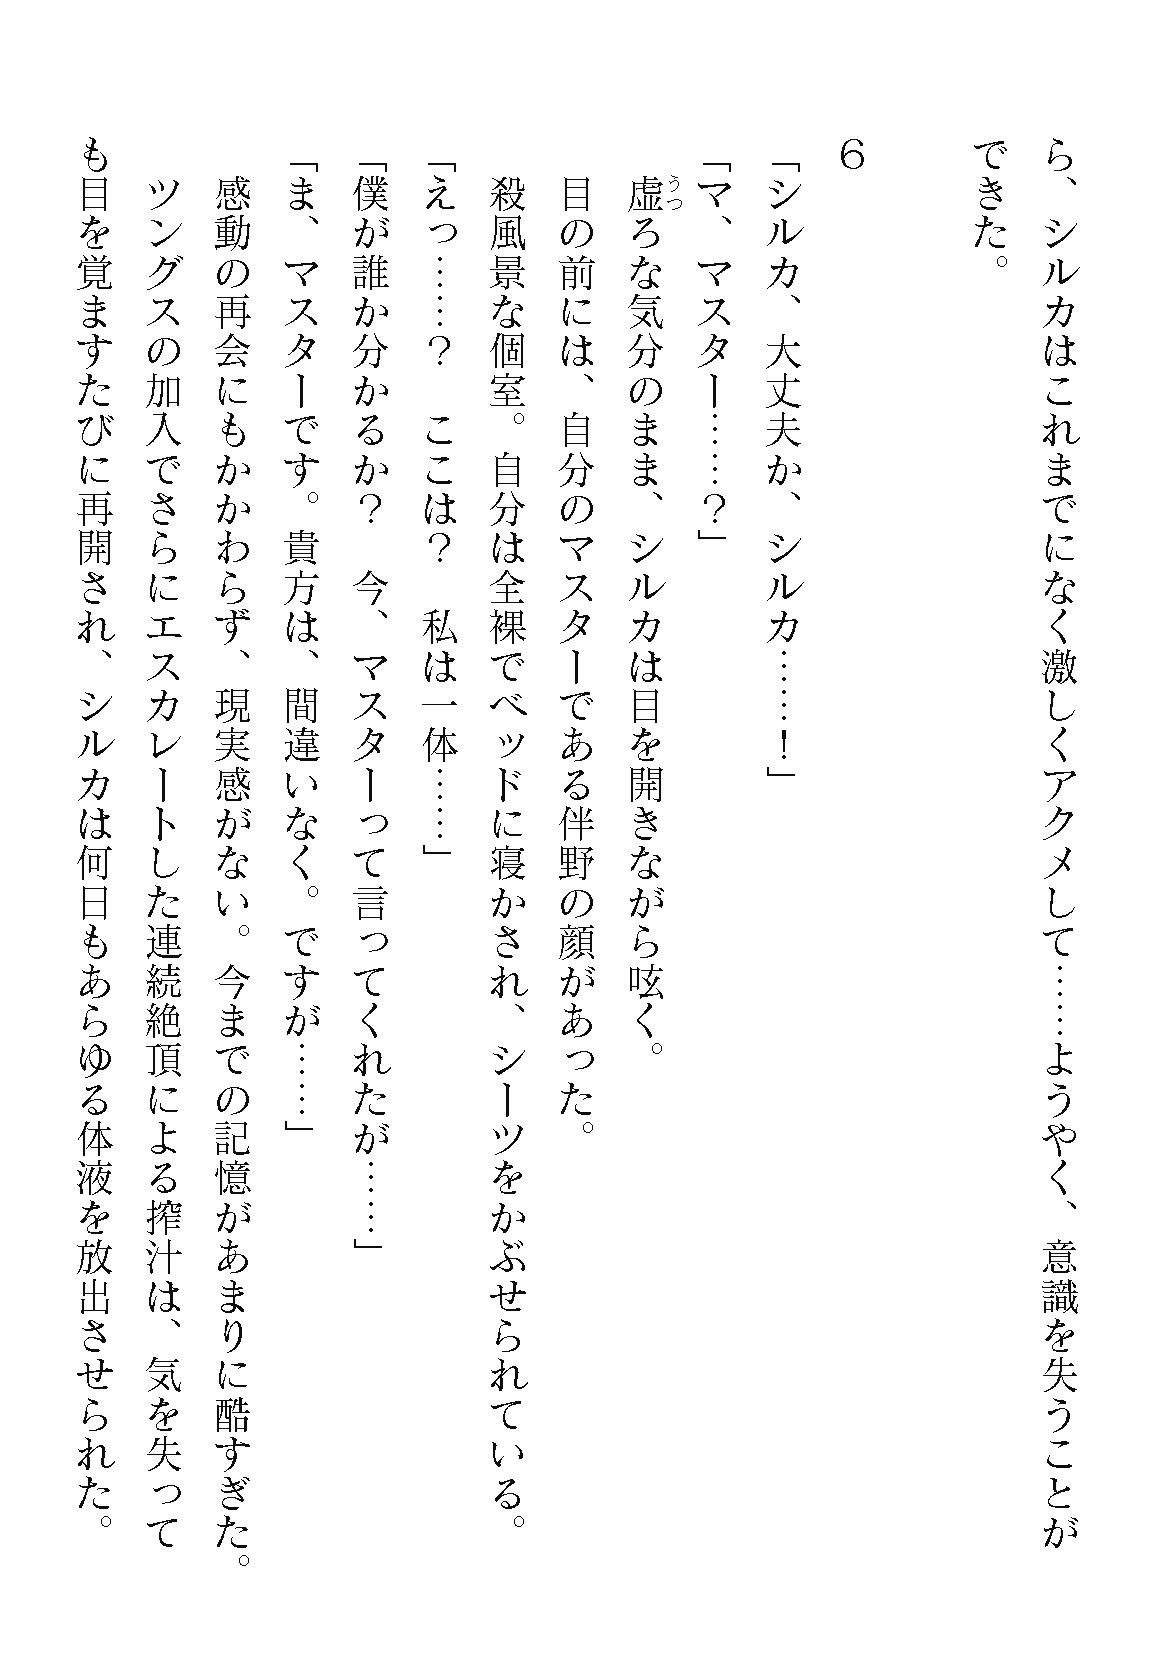 ら、シルカはこれまでになく激しくアクメして……ようやく、意識を失うことが
できた。
６
「シルカ、大丈夫か、シルカ……！」
「マ、マスター……？」
虚うつろな気分のまま、シルカは目を開きながら呟く。
目の前には、自分のマスターである伴野の顔があった。
殺風景な個室。自分は全裸でベッドに寝かされ、シーツをかぶせられている。
「えっ……？　ここは？　私は一体……」
「僕が誰か分かるか？　今、マスターって言ってくれたが……」
「ま、マスターです。貴方は、間違いなく。ですが……」
感動の再会にもかかわらず、現実感がない。今までの記憶があまりに酷すぎた。
ツングスの加入でさらにエスカレートした連続絶頂による搾汁は、気を失って
も目を覚ますたびに再開され、シルカは何日もあらゆる体液を放出させられた。